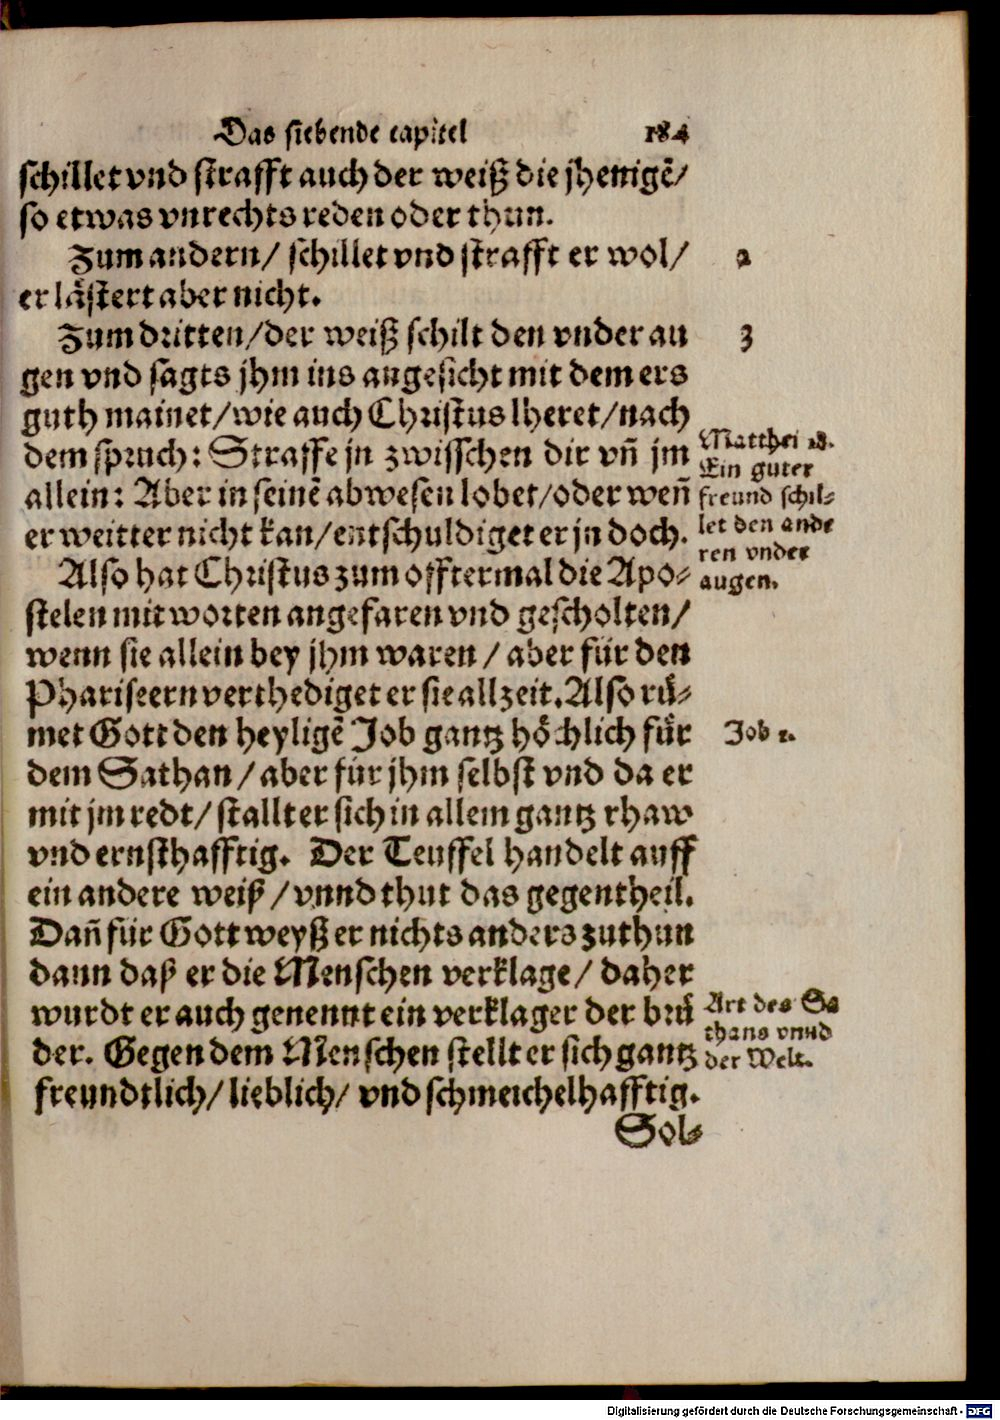 Das siebende capitel 184
schillet vnd strafft auch der weiß die jhenigẽ/
so etwas vnrechts reden oder thun.
Zum andern/ schillet vnd strafft er wol/
er lästert aber nicht.
2
Zum dritten/der weiß schilt den vnder au
3
gen vnd sagts jhm ins angesicht mit dem ers
guth mainet/wie auch Christus lheret/nach
dem spruch: Straffe jn zwisschen dir vñ jm
allein: Aber in seinẽ abwesen lobet/oder weñ
er weitter nicht kan/entschuldiget er jn doch.
Matthei 18.
Ein guter
freund schil⸗
let den ande
ren vnder
augen.
Also hat Christus zum offtermal die Apo⸗
stelen mit worten angefaren vnd gescholten/
wenn sie allein bey jhm waren / aber für den
Phariseern verthediget er sie allzeit. Also rů⸗
met Gott den heyligẽ Job gantz höchlich für
Job 1.
dem Sathan / aber für jhm selbst vnd da er
mit jm redt/ stallt er sich in allem gantz rhaw
vnd ernsthafftig. Der Teuffel handelt auff
ein andere weiß / vnnd thut das gegentheil.
Dañ für Gott weyß er nichts anders zuthun
dann daß er die Menschen verklage/ daher
wurdt er auch genennt ein verklager der brů
der. Gegen dem Menschen stellt er sich gantz
freundtlich/ lieblich/ vnd schmeichelhafftig.
Art des Sa
thans vnnd
der Welt.
Sol⸗
Digitalisierung gefördert durch die Deutsche Forschungsgemeinschaft - DFG